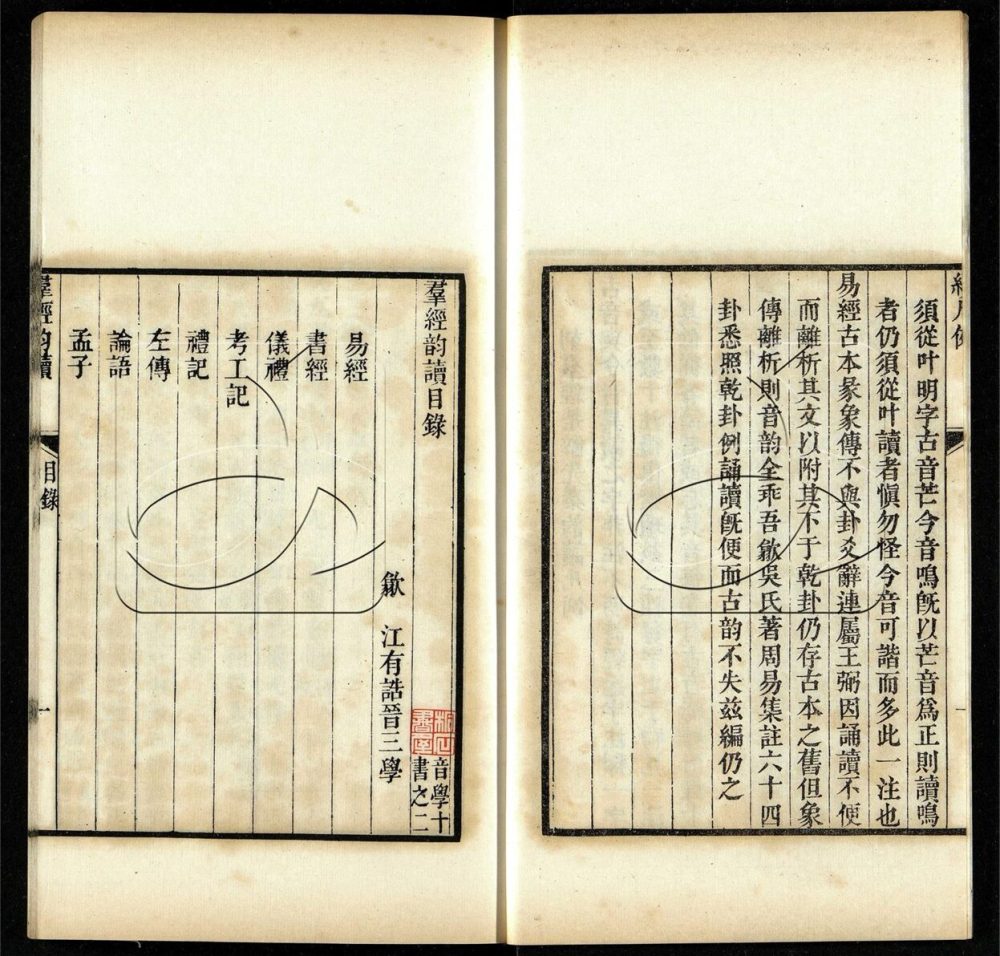 須從叶明字古音芒今音鳴旣以芒音爲正則讀鳴
者仍須從叶讀者愼勿怪今音可諧而多此一注也
易經古本彖象傳不與卦爻辭連屬王弼因誦讀不便
而離析其文以附其下于乾卦仍存古本之舊但象
傳離析則音韵全乖吾歙吳氏著周易集註六十四
卦悉照乾卦例誦讀旣便而古韵不失玆編仍之
羣經韵讀目錄
音學十
書之二
歙 江有誥晉三學
易經
書經
儀禮
考工記
禮記
左傳
論語
孟子
羣經韵讀 目錄 一